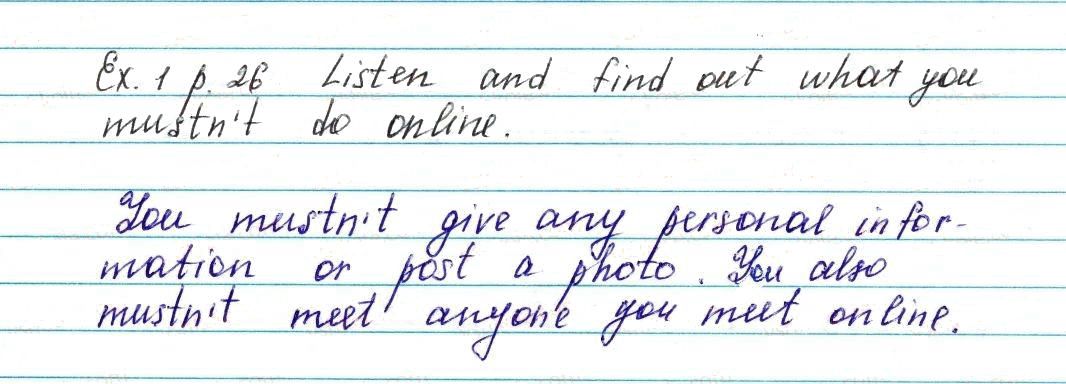 Ex. 1 p. 26 Listen and find out what you
mustn't do online.
You mustn't give any personal infor-
mation or post a photo. You also
mustn't meet anyone you meet online.